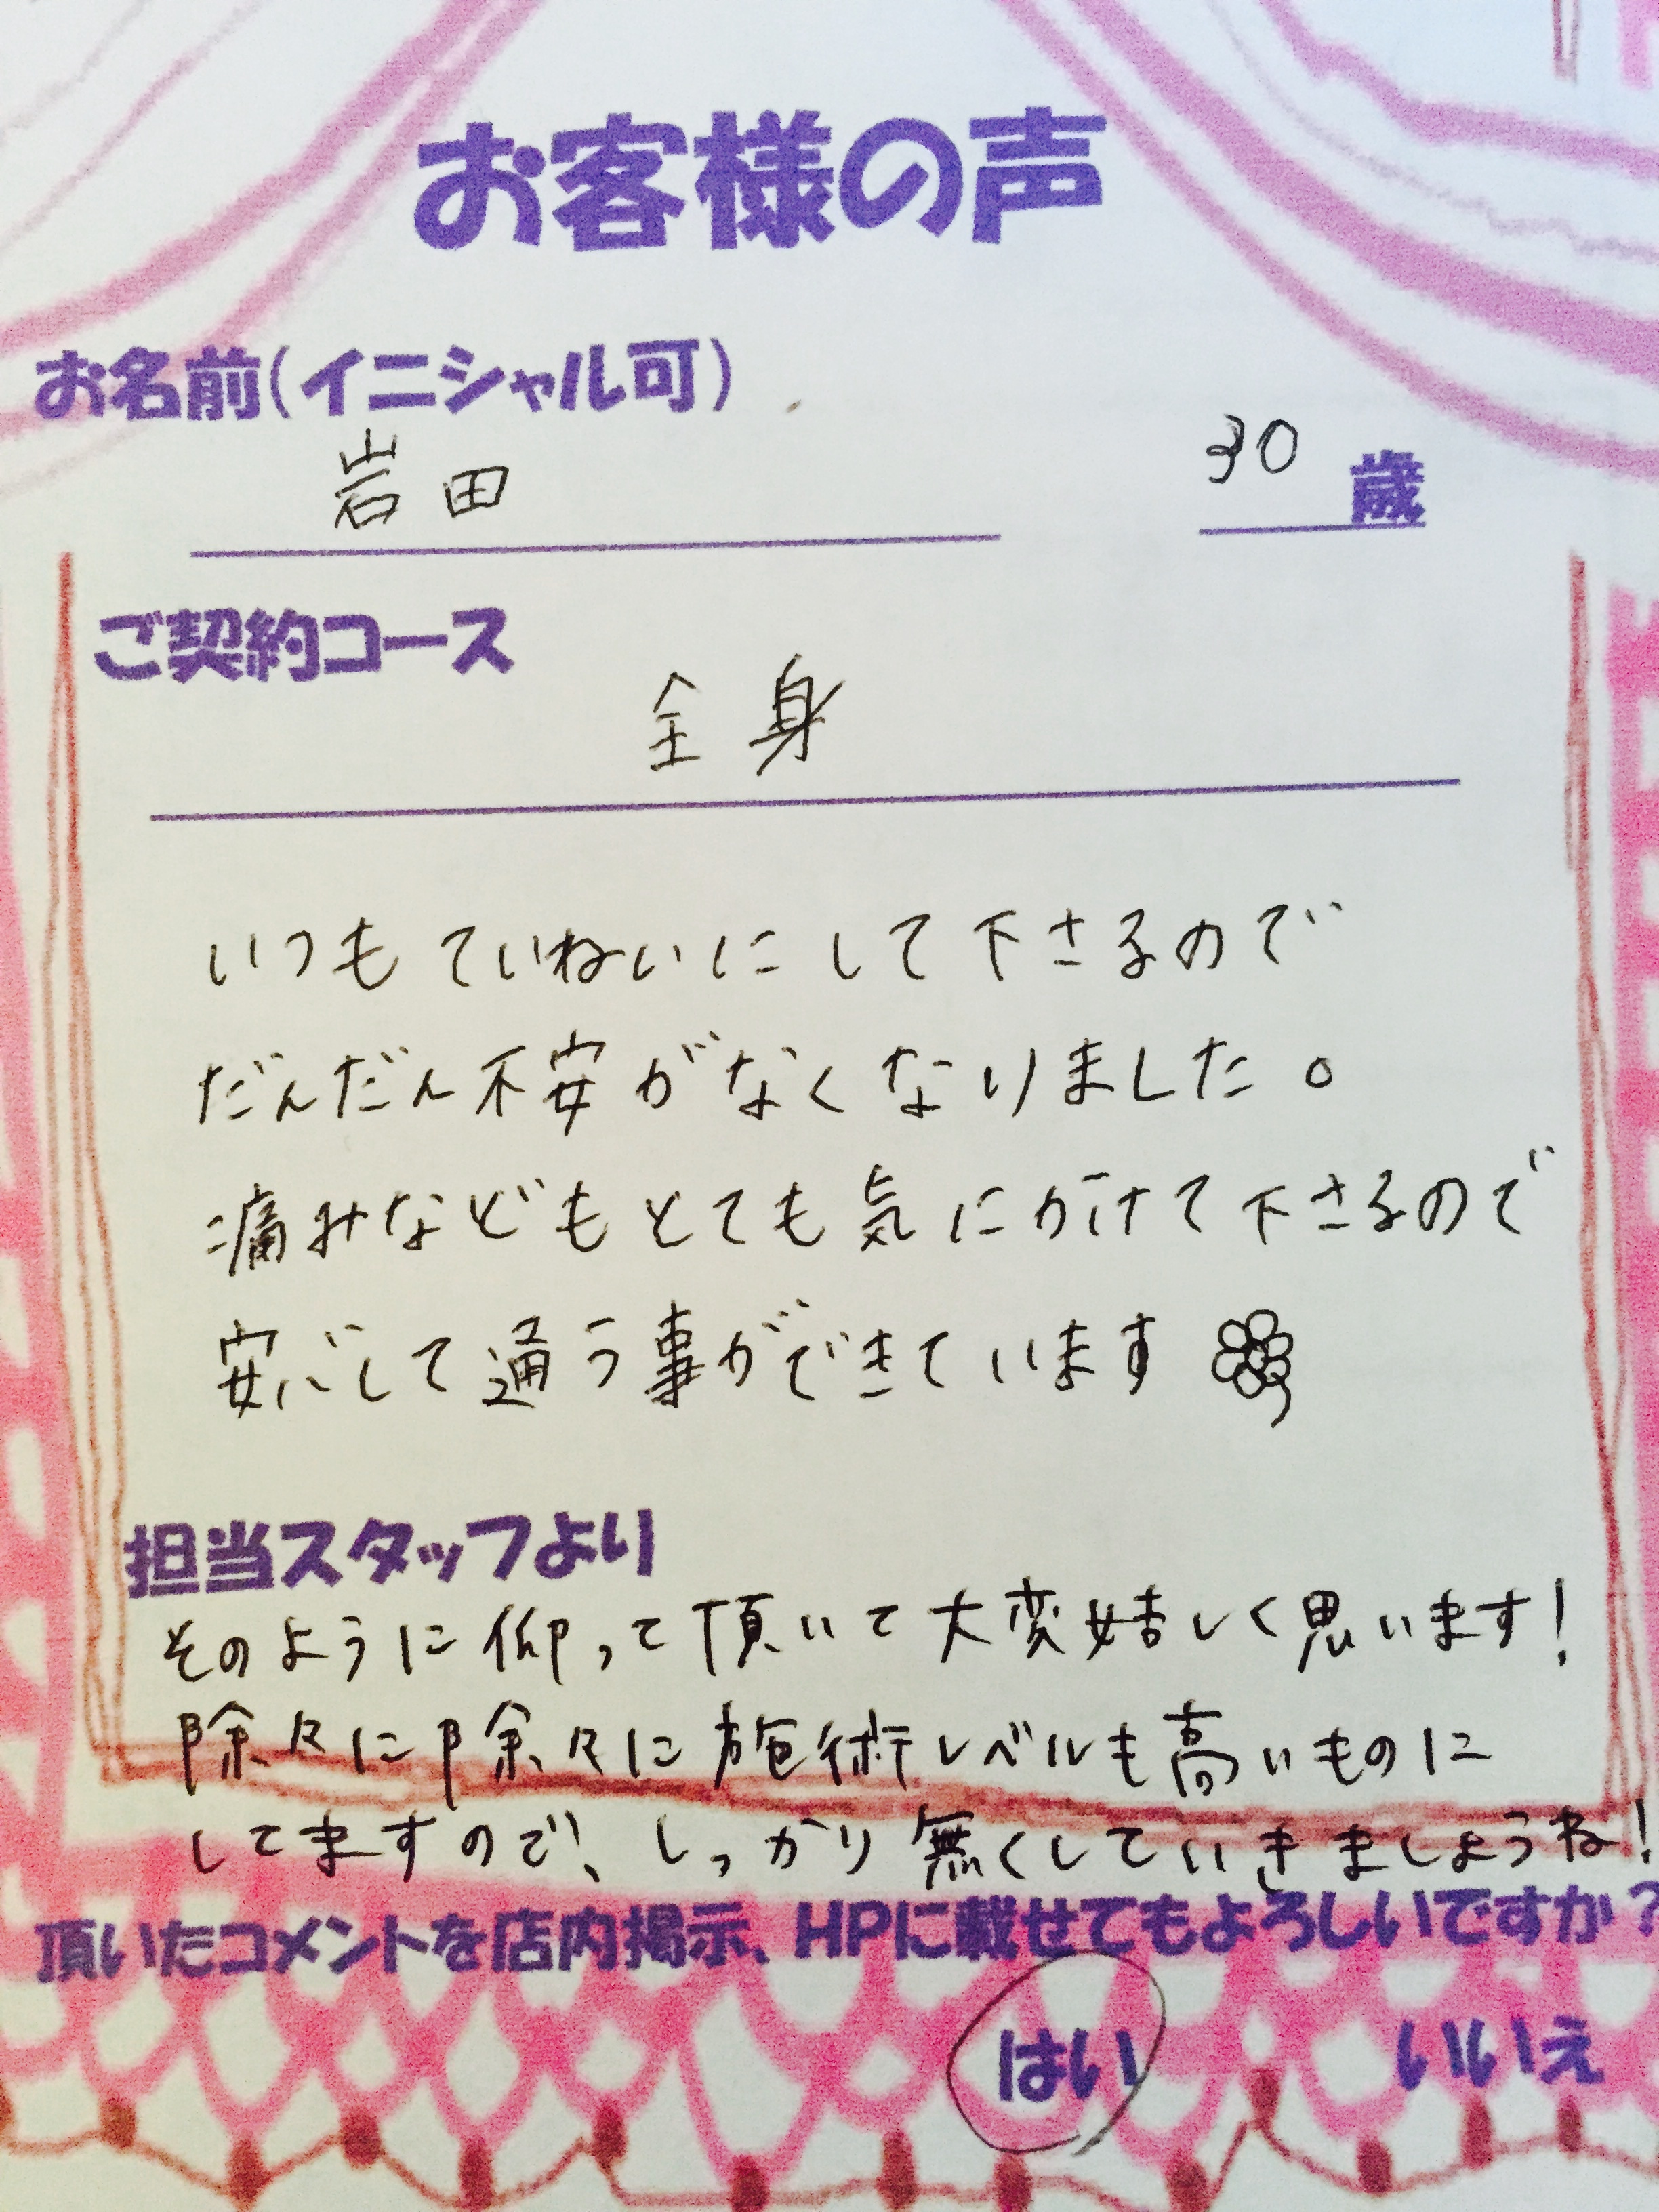 お客様の声
お名前(イニシャル可)
岩田
30歳
ご契約コース
全身
いつもていねいにして下さるので
だんだん不安がなくなりました。
痛みなどもとても気にかけて下さるので
安心して通う事ができています
担当スタッフより
そのように仰って頂いて大変嬉しく思います!
除々に除々に施術レベルも高いものに
してますので、しっかり無くしていきましょうね!
頂いたコメントを店内掲示、HPに載せてもよろしいですか?
はい いいえ